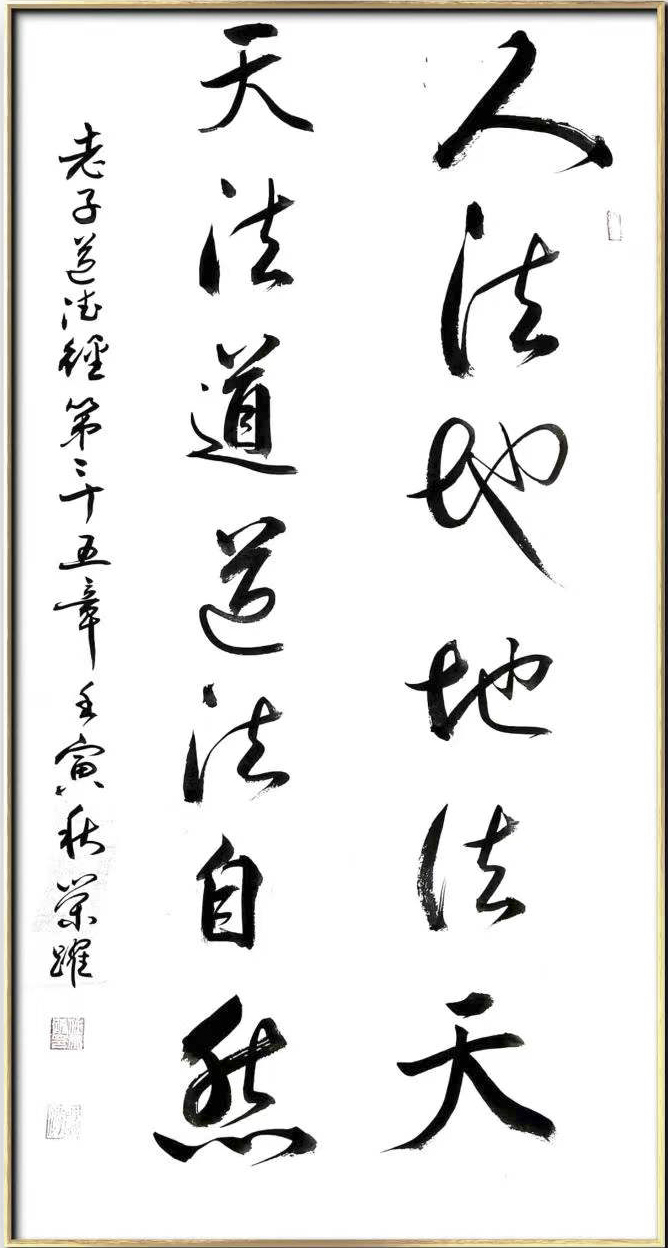 人法地地法天
天法道道法自然
老子道德經第二十五章壬寅秋榮躍